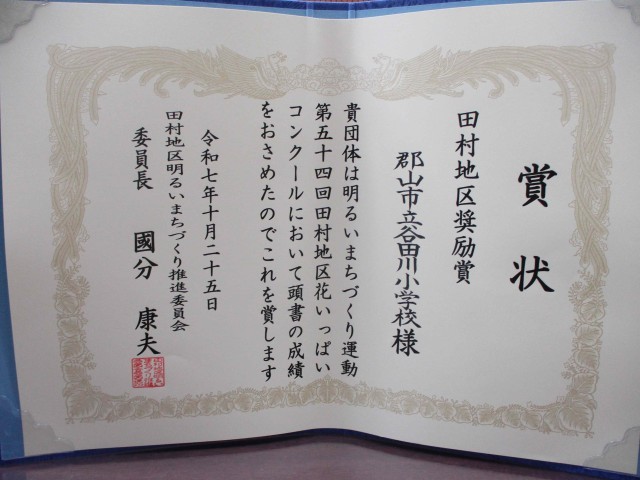 賞状
田村地区奨励賞
郡山市立谷田川小学校様
貴団体は明るいまちづくり運動
第五十四回田村地区花いっぱい
コンクールにおいて頭書の成績
をおさめたのでこれを賞します
令和七年十月二十五日
田村地区明るいまちづくり推進委員会
委員長 國分 康夫